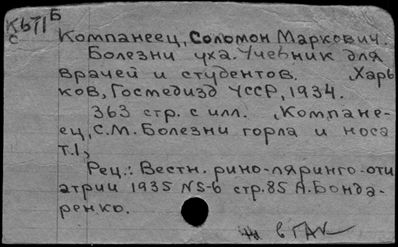 К671 Б
с
Компанеец, Соломон Маркович.
Болезни уха. Учебник для
врачей и студентов. ,Харь
ков, Госмедизд УССР, 1934.
363 стр. с илл. ,Компане-
ец, С.М. Болезни горла и носа
т.1,
Рец.: Вестн. рино-ляринго-оти
атрии 1935 N5-6 стр.85 А.Бонда-
ренко.
в ГАК